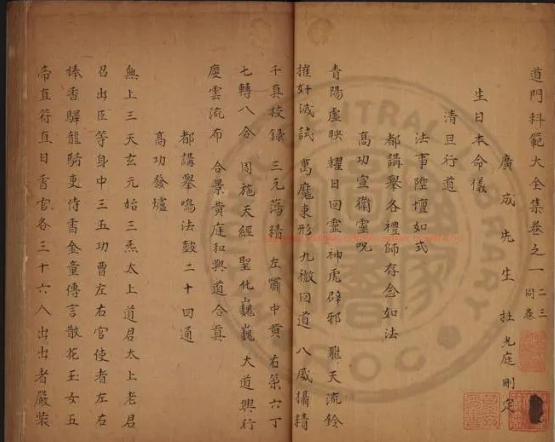 道門科範大全集卷之一 二三同卷
廣成先生杜光庭刪定
生日本命儀
清旦行道
法事陞壇如式
都講舉各禮師存念如法
高功宣衛靈呪
青陽虛映耀日回靈神虎辟邪飛天流鈴
摧奸滅試萬魔束形九徹回道八威攝精
千真校錄三元蕩穢左嘯中黃右策六丁
七轉八合周旋天經聖化巍巍大道興行
慶雲流布合景黃庭和與道合真
都講舉鳴法鼓二十四通
高功發爐
無上三天玄元始三炁太上道君太上老君
召出臣等身中三五功曹左右官使者左右
捧香驛龍騎吏侍香金童傳言散花玉女五
帝直符直日香官各三十六人出出者嚴裝